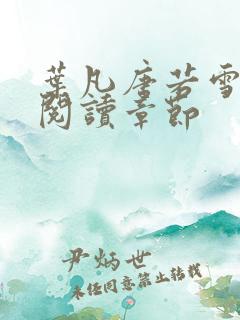 葉凡唐若雪
閱讀章節
尹炳世
未经同意禁止转载